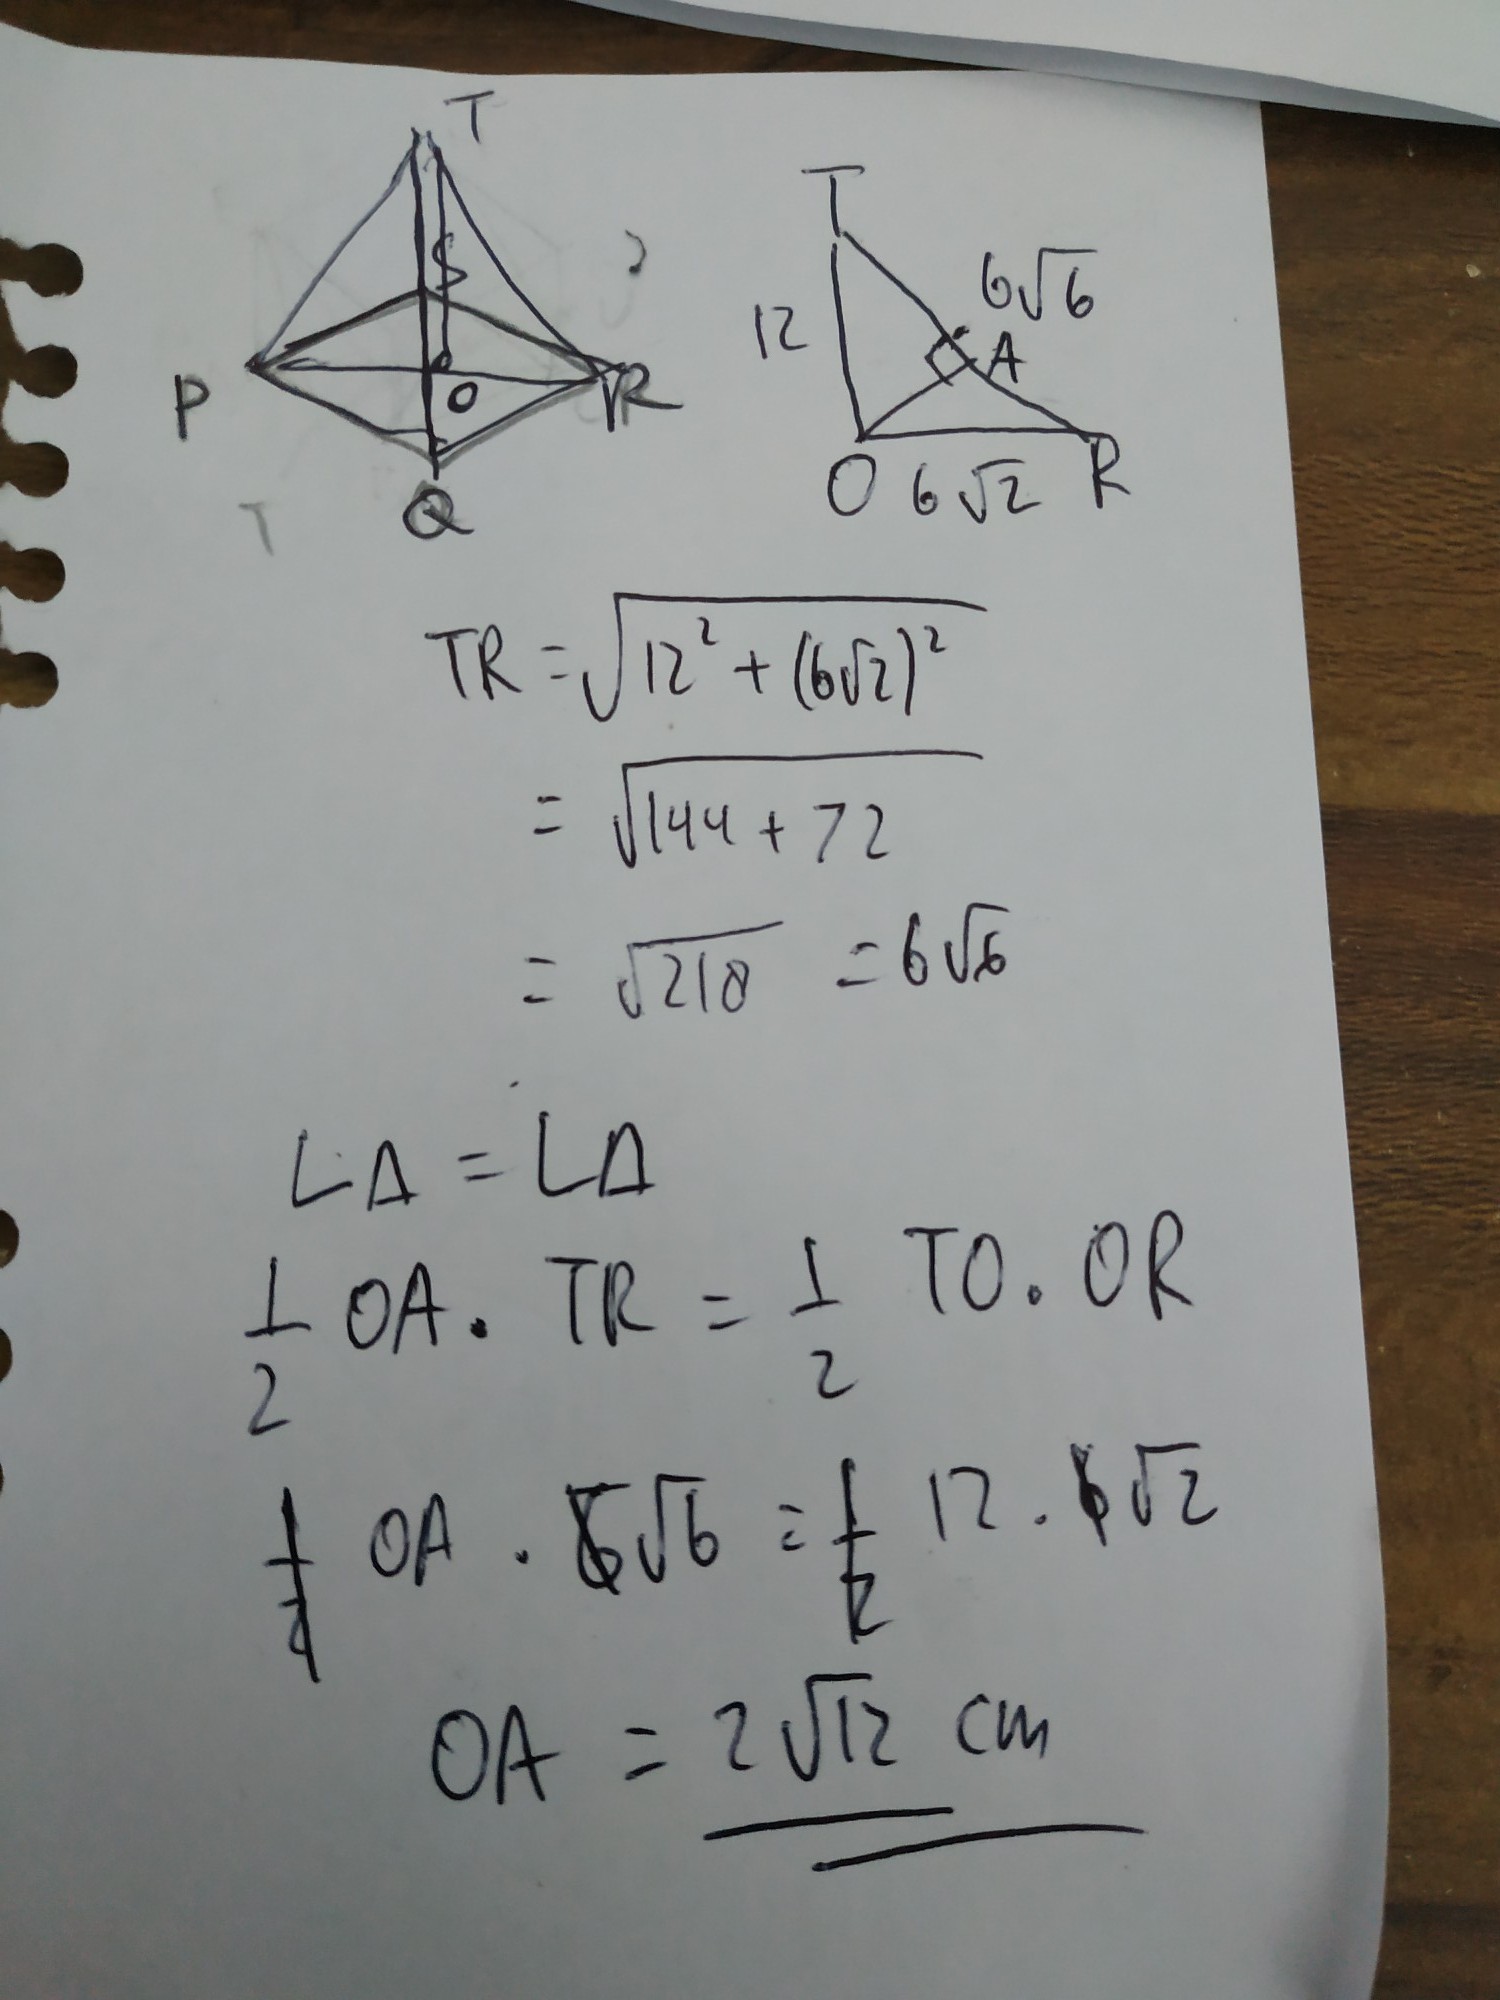 T
S
P
O
R
Q
T
T
12
6√6
A
O 6√2 R
TR = √12² + (6√2)²
= √144 + 72
= √218 = 6√6
LΔ = LΔ
1/2 OA . TR = 1/2 TO . OR
1/2 OA . 6√6 = 1/2 12 . 6√2
OA = 2√12 cm